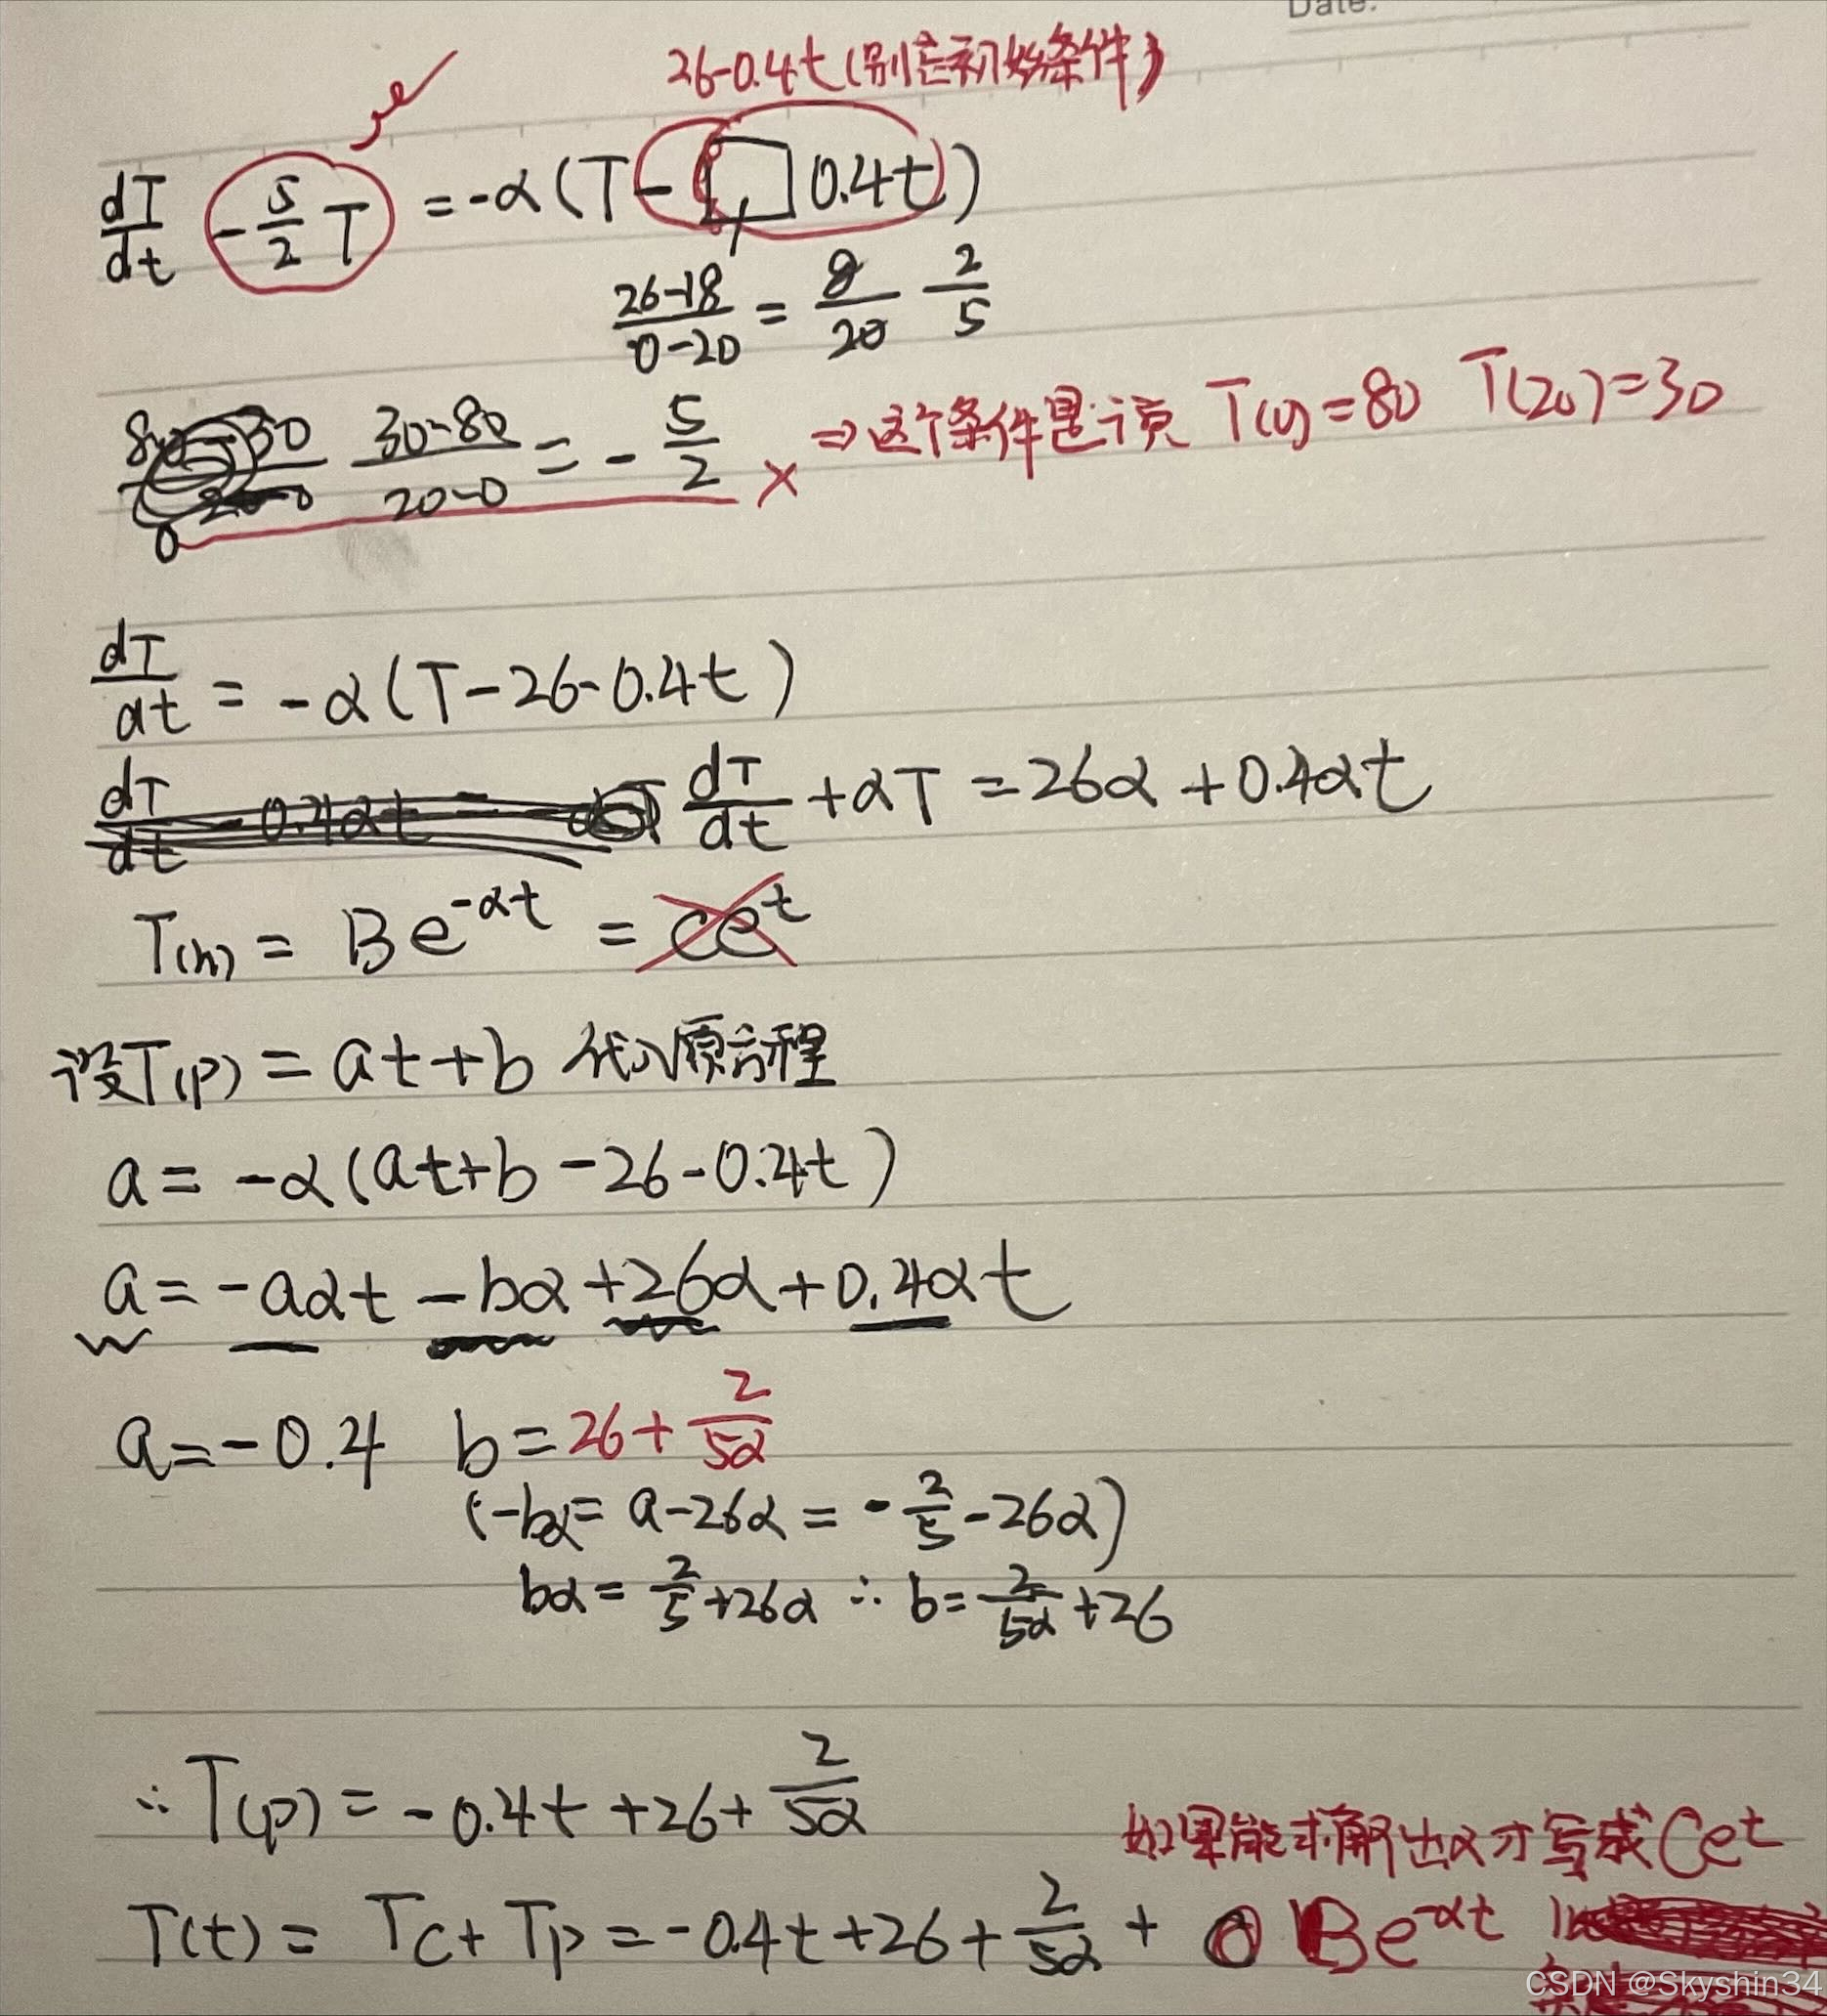 Date:
26-0.4t (别忘初始条件)
dT/dt -5/2 T = -α(T-□ 0.4t)
26-18/0-20 = 8/20 2/5
30-80/20-0 = -5/2 × ⇒这个条件是让觅 T(0)=80 T(20)=30
dT/dt = -α(T-26-0.4t)
dT/dt +αT = 26α+0.4αt
T(h) = Be^-αt = Ce^t
设T(p) = at+b 代入原方程
a = -α(at+b-26-0.4t)
a = -aαt -bα +26α +0.4αt
a = -0.4 b = 26+ 2/5α
(-bα = a-26α = -2/5 -26α)
bα = 2/5 +26α ∴ b = 2/5α +26
∴ T(p) = -0.4t +26+ 2/5α
如果能求解出α才写成Ce^t
T(t) = Tc+Tp = -0.4t+26+ 2/5α + Be^-αt
CSDN @Skyshin34